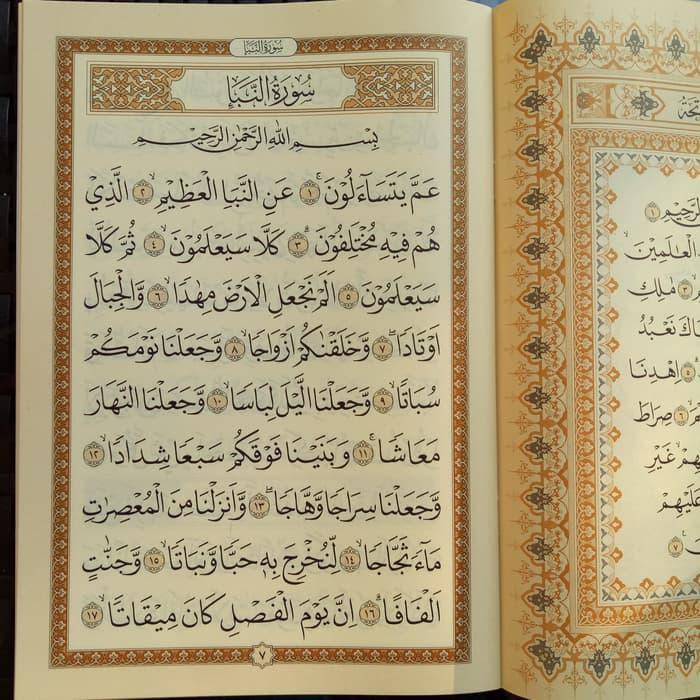 سُوْرَةُ النَّبَاِ
سُوْرَةُ النَّبَاِ
بِسْمِ اللّٰهِ الرَّحْمٰنِ الرَّحِيْمِ
عَمَّ يَتَسَاۤءَلُوْنَۚ ١ عَنِ النَّبَاِ الْعَظِيْمِۙ ٢ الَّذِيْ
هُمْ فِيْهِ مُخْتَلِفُوْنَۗ ٣ كَلَّا سَيَعْلَمُوْنَۙ ٤ ثُمَّ كَلَّا
سَيَعْلَمُوْنَ ٥ اَلَمْ نَجْعَلِ الْاَرْضَ مِهٰدًاۙ ٦ وَّالْجِبَالَ
اَوْتَادًاۖ ٧ وَّخَلَقْنٰكُمْ اَزْوَاجًاۙ ٨ وَّجَعَلْنَا نَوْمَكُمْ
سُبَاتًاۙ ٩ وَّجَعَلْنَا الَّيْلَ لِبَاسًاۙ ١٠ وَّجَعَلْنَا النَّهَارَ
مَعَاشًاۚ ١١ وَبَنَيْنَا فَوْقَكُمْ سَبْعًا شِدَادًاۙ ١٢
وَّجَعَلْنَا سِرَاجًا وَّهَّاجًاۖ ١٣ وَّاَنْزَلْنَا مِنَ الْمُعْصِرٰتِ
مَاۤءً ثَجَّاجًاۙ ١٤ لِّنُخْرِجَ بِهٖ حَبًّا وَّنَبَاتًاۙ ١٥ وَّجَنّٰتٍ
اَلْفَافًاۗ ١٦ اِنَّ يَوْمَ الْفَصْلِ كَانَ مِيْقَاتًاۙ ١٧
٧
الرَّحِيْمِ ١
الْعٰلَمِيْنَۙ
٣ مٰلِكِ
نَعْبُدُ
٥ اِهْدِنَا
٦ صِرَاطَ
غَيْرِ
عَلَيْهِمْ
٧